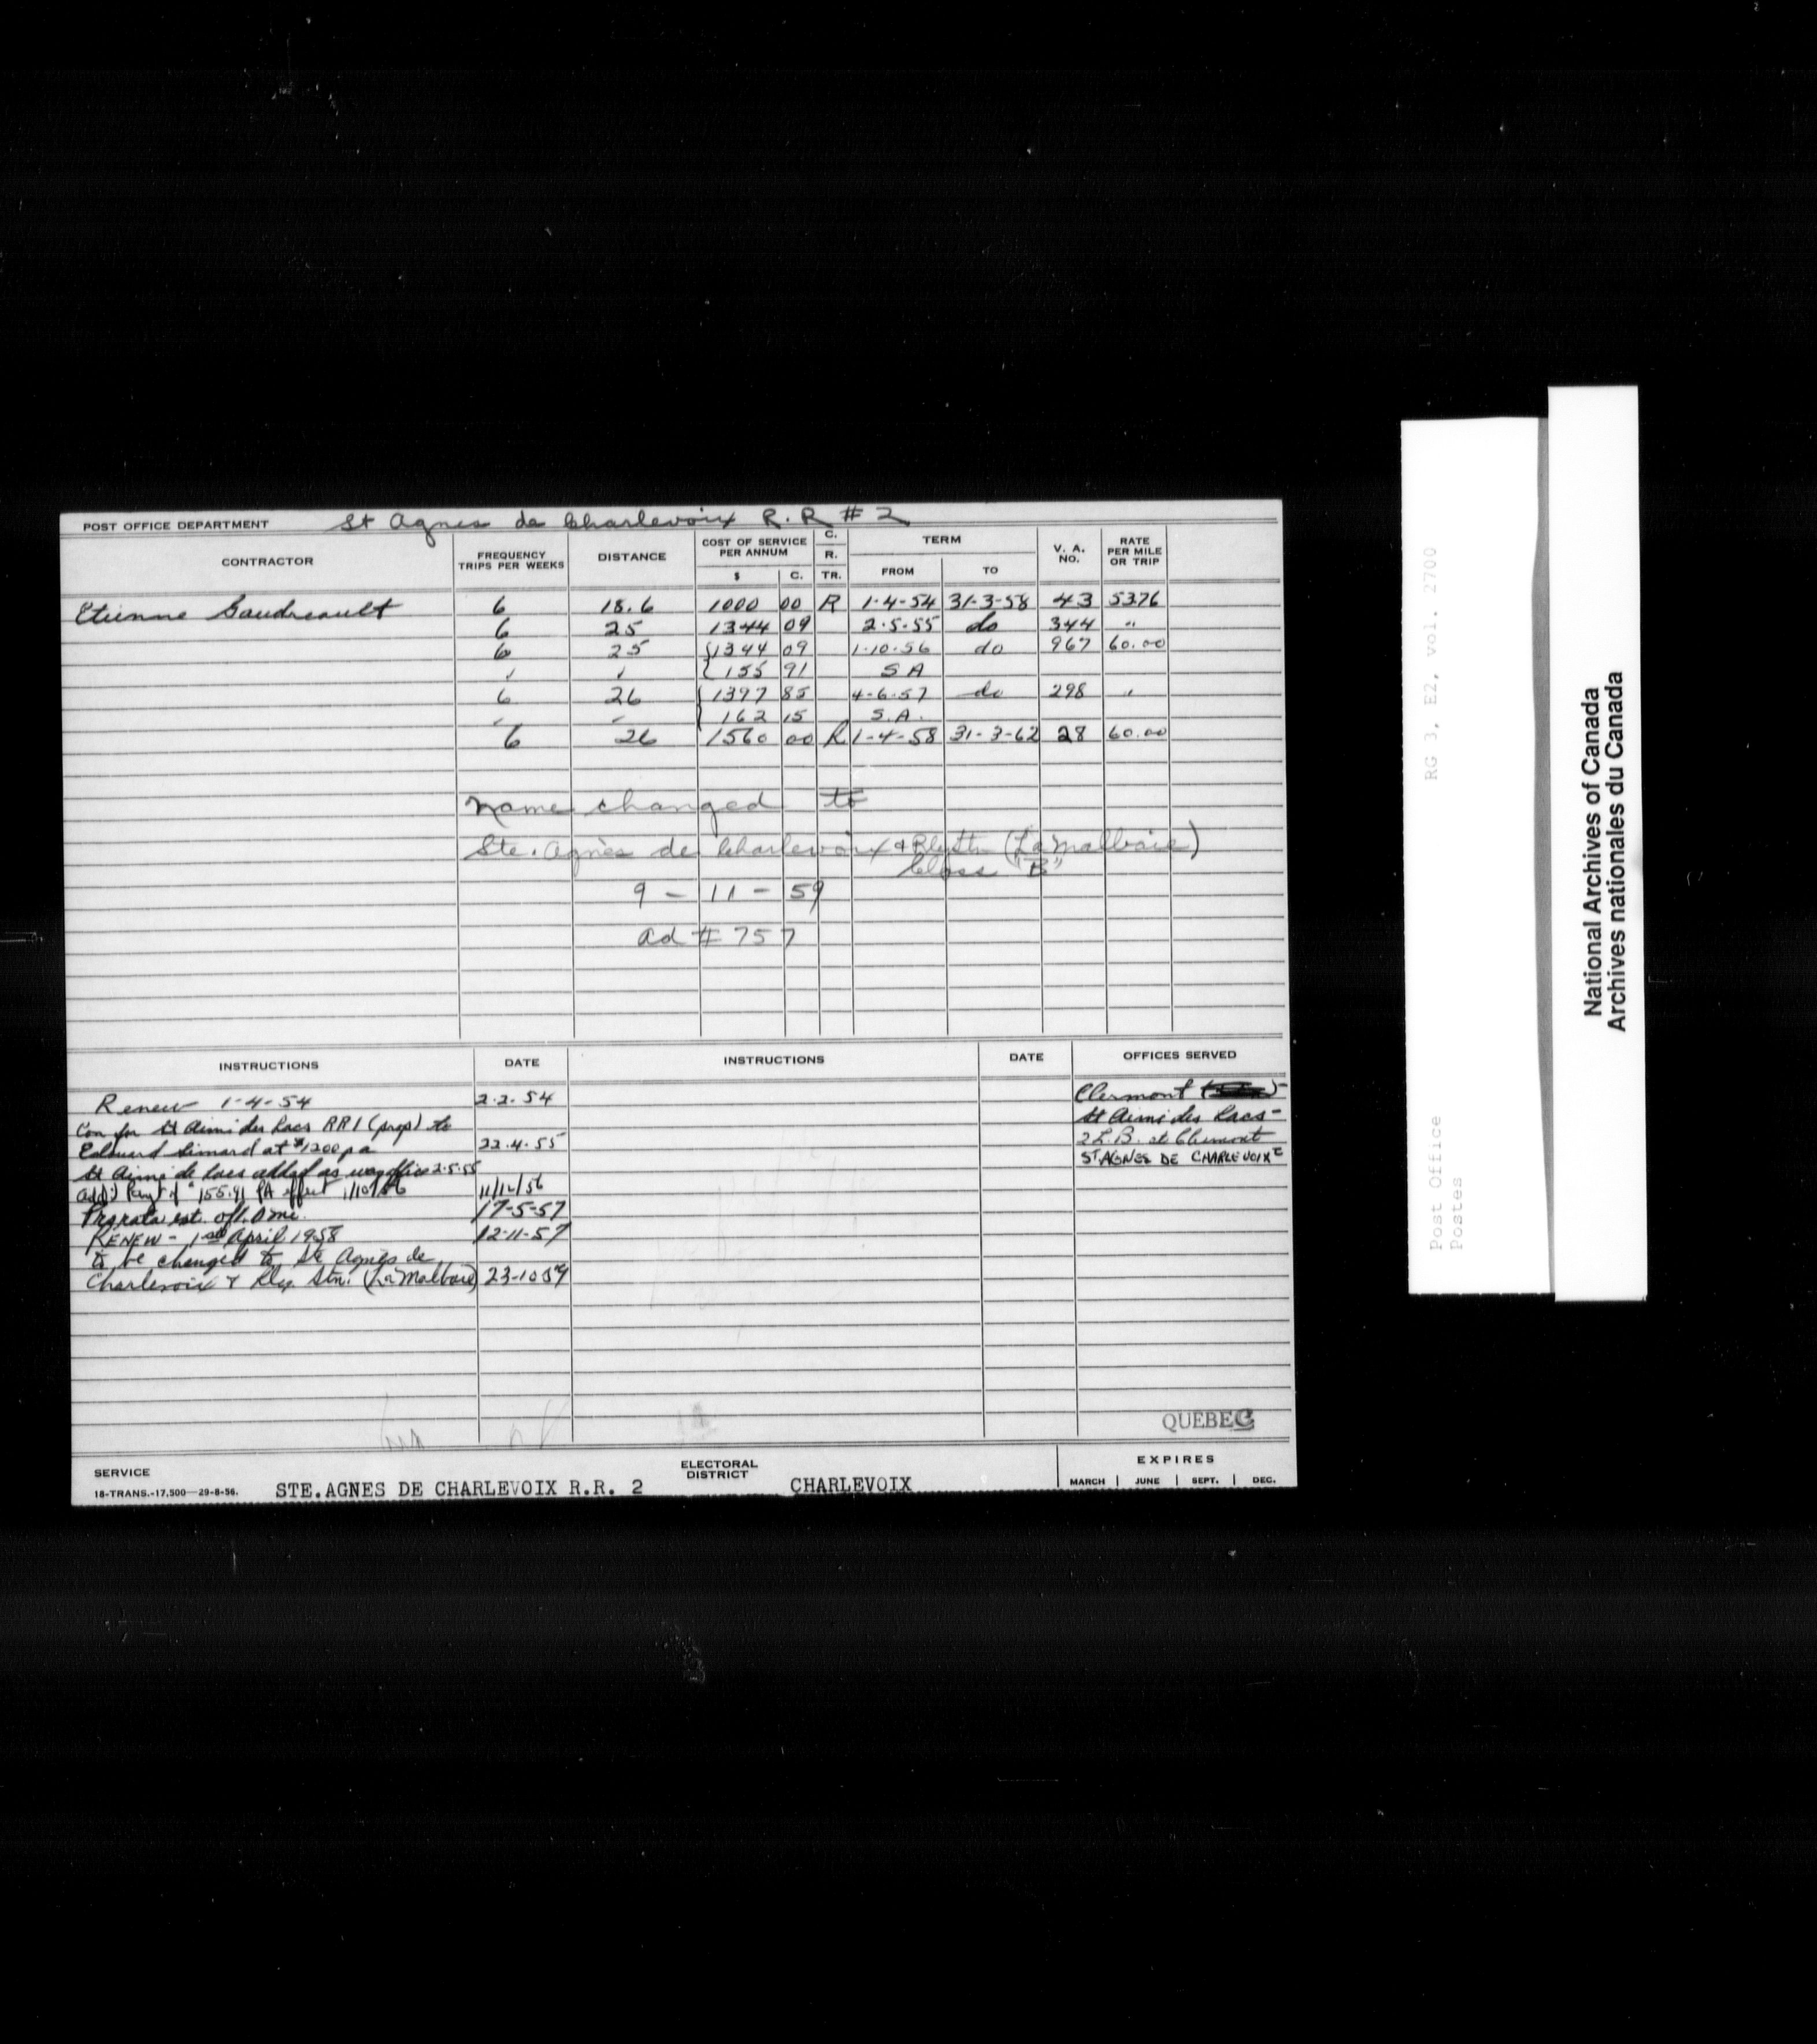 POST OFFICE DEPARTMENT St Agnes de Charlevoix R.R # 2
CONTRACTOR FREQUENCY TRIPS PER WEEKS DISTANCE COST OF SERVICE PER ANNUM $ C. C. R. TR. TERM FROM TO V. A. NO. RATE PER MILE OR TRIP
Etienne Gaudreault 6 18.6 1000 00 R 1-4-54 31-3-58 43 53.76
6 25 1344 09 2-5-55 do 344 "
6 25 1344 09 1-10-56 do 967 60.00
" " 155 91 S A
6 26 1397 85 4-6-57 do 298 "
" " 162 15 S.A.
6 26 1560 00 R 1-4-58 31-3-62 28 60.00
name changed to
Ste. Agnès de Charlevoix & Rly Stn (La Malbaie)
Class "B"
9 - 11 - 59
ad # 757
INSTRUCTIONS DATE INSTRUCTIONS DATE OFFICES SERVED
Renew 1-4-54 2-2-54
Con for St Aimé des Lacs RR1 (prop) to
Edouard Simard at $1200 pa 22-4-55
St Aimé de Lacs added as way office 2-5-55
add'l Pay't of $155.91 PA effect 1/10/56 11/12/56
Pro rata est. of 1.0 mi. 17-5-57
RENEW - 1st April 1958 12-11-57
to be changed to Ste Agnès de
Charlevoix & Rly Stn. (La Malbaie) 23-10-59
Clermont
St Aimé des Lacs -
2 L.B. at Clermont
ST AGNES DE CHARLEVOIX
QUEBEC
SERVICE
18-TRANS.-17,500—29-8-56.
STE.AGNES DE CHARLEVOIX R.R. 2
ELECTORAL DISTRICT CHARLEVOIX
EXPIRES
MARCH | JUNE | SEPT. | DEC.
RG 3, E2, vol. 2700
Post Office
Postes
National Archives of Canada
Archives nationales du Canada